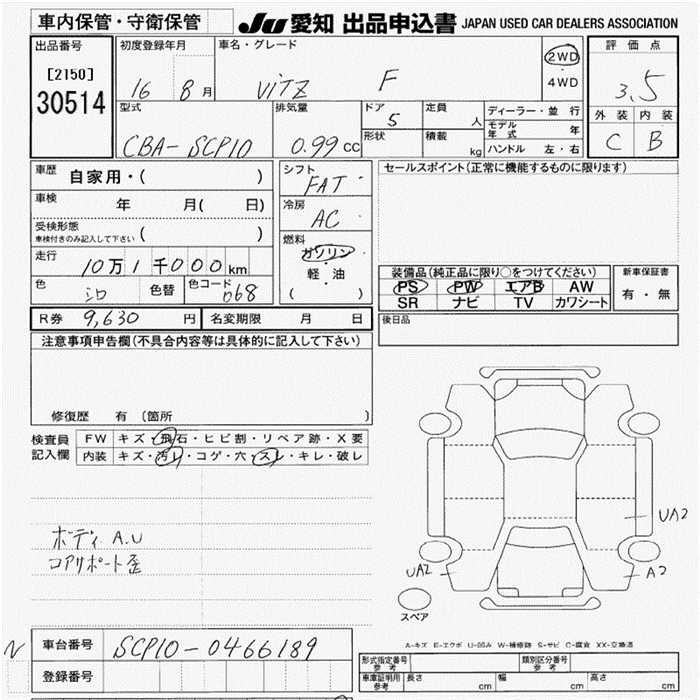 車内保管・守衛保管
JU 愛知 出品申込書 JAPAN USED CAR DEALERS ASSOCIATION
出品番号
[2150]
30514
初度登録年月
16 8 月
車名・グレード
VITZ F
2WD
・
4WD
評価点
3.5
外装 内装
C B
型式
CBA-SCP10
排気量
0.99 cc
ドア
5
形状
定員
人
積載
kg
ディーラー・並行
モデル年式 年
ハンドル 左・右
車歴 自家用・( )
車検 年 月( 日)
受検形態
車検付きのみ記入して下さい ( )
走行 10万1千000km
色 シロ 色替 色コード 068
シフト
FAT
冷房
AC
燃料
ガソリン
・
軽・油
( )
セールスポイント(正常に機能するものに限ります)
装備品(純正品に限り○をつけてください)
PS PW エアB AW
SR ナビ TV カワシート
新車保証書
有・無
後日品
R券 9,630 円 名変期限 月 日
注意事項申告欄(不具合内容等は具体的に記入して下さい)
修復歴 有 (箇所 )
検査員
記入欄
FW キズ・飛石・ヒビ割・リペア跡・X要
内装 キズ・汚レ・コゲ・穴・スレ・キレ・破レ
ボディ A.U
コアサポート歪
UA2
UA2
A2
スペア
A-キズ E-エクボ U-凹み W-補修跡 S-サビ C-腐食 XX-交換済
N
車台番号 SCP10-0466189
登録番号
形式指定番号
参考
類別区分番号
参考
車庫証明用
参考
長さ cm 幅 cm 高さ cm